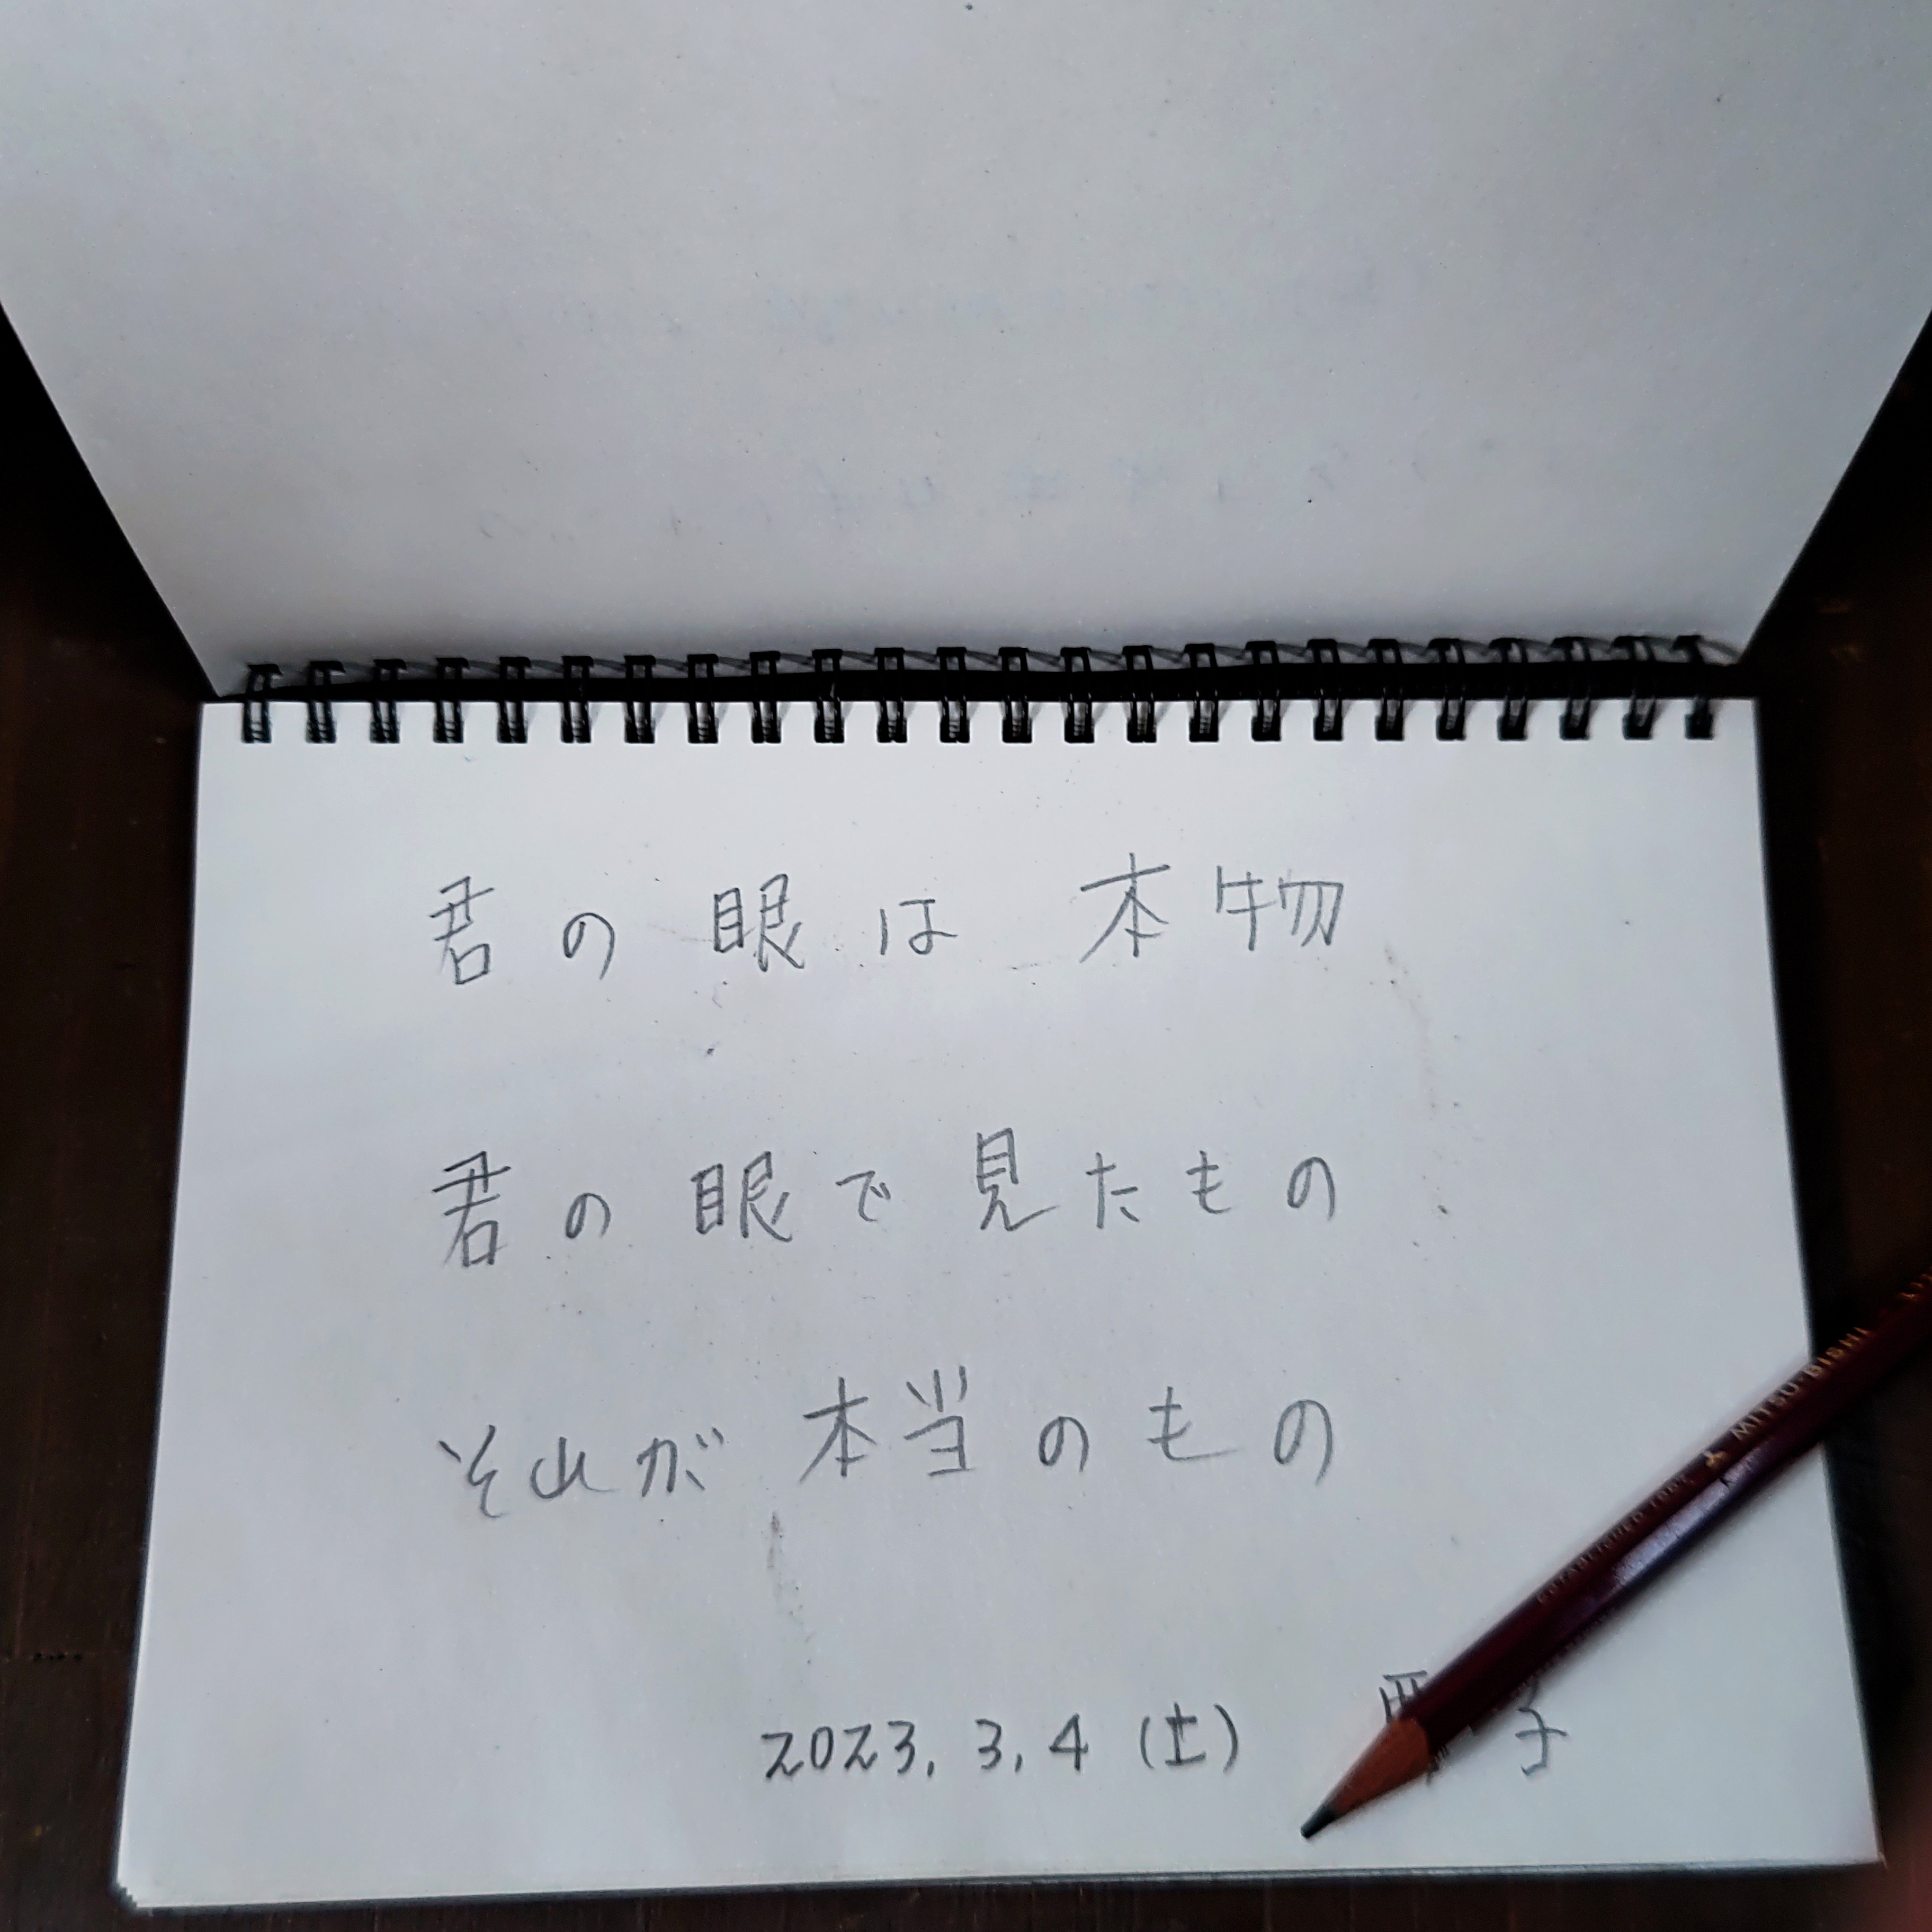 君の眼は本物
君の眼で見たもの
それが本当のもの
2023.3.4(土)
MITSU-BISHI